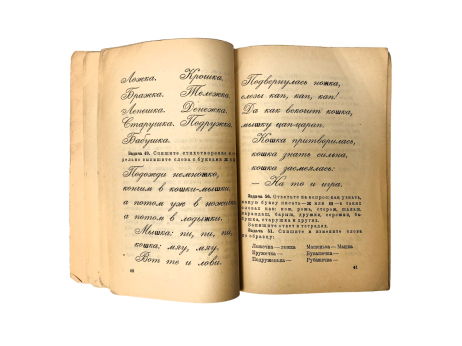 Ложка. Крошка.
Бражка. Тележка.
Лепешка. Денежка.
Старушка. Подружка.
Бабушка.
Задача 49. Спишите стихотворение и
выпишите слова с буквами
Подожди немножко,
кошки-мышки,
а потом уж в
а потом в лодыжки.
Мышка: пи, пи, пи,
кошка: мяу, мяу.
Вот те и лови.
40
Подвернулась ножка,
слезы кап, кап, кап!
Да как вскочит кошка,
мышку цап-царап.
Кошка притворилась,
кошка знать сильна,
кошка засмеялась:
— На то и игра.
Задача 50. Ответьте на вопрос: как узнать,
какую букву писать — ж или ш — в таких
словах как: нож, рожь, старож, шалаш,
карандаш, барыш, дружба, сережка, ба-
бушка, старушка и другие.
Напишите ответ в тетрадях.
Задача 51. Спишите и измените слова
по образцу:
Ложечка — ложка Машенька — Машка
Кружечка — Бумажечка —
Подруженька — Рубашечка —
41